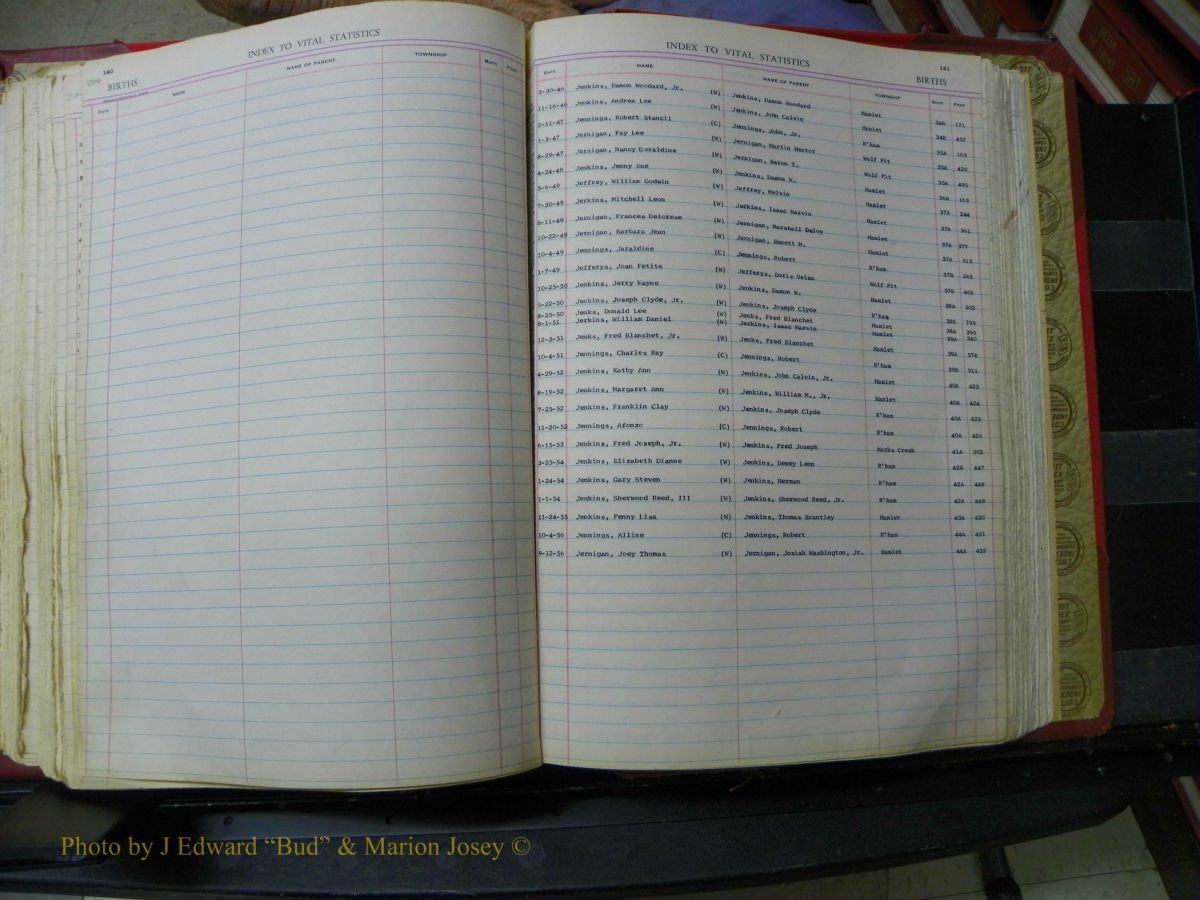 140
INDEX TO VITAL STATISTICS
BIRTHS
DATE NAME NAME OF PARENT TOWNSHIP BOOK PAGE
INDEX TO VITAL STATISTICS 141
BIRTHS
DATE NAME NAME OF PARENT TOWNSHIP BOOK PAGE
3-30-46 Jenkins, Damon Woodard, Jr. (W) Jenkins, Damon Woodard Hamlet 34B 171
11-16-46 Jenkins, Andrea Lee (W) Jenkins, John Calvin Hamlet 34B 457
2-11-47 Jennings, Robert Stancil (C) Jennings, John, Jr. R'ham 35A 163
1-3-47 Jernigan, Fay Lee (W) Jernigan, Martin Hector Wolf Pit 35A 429
8-29-47 Jernigan, Nancy Geraldine (W) Jernigan, Aaron T. Wolf Pit 35A 495
4-24-48 Jenkins, Jenny Sue (W) Jenkins, Damon W. Hamlet 36B 163
5-6-49 Jeffrey, William Godwin (W) Jeffrey, Melvin Hamlet 37A 244
7-30-49 Jerkins, Mitchell Leon (W) Jerkins, Isaac Marvin Hamlet 37A 361
8-11-49 Jernigan, Frances Delorese (W) Jernigan, Marshall Deloy Hamlet 37A 377
10-22-49 Jernigan, Barbara Jean (W) Jernigan, Emmett M. Hamlet 37A 513
10-4-49 Jennings, Jaraldine (C) Jennings, Robert R'ham 37B 262
1-7-49 Jefferys, Joan Fetite (W) Jefferys, Doris Velma Wolf Pit 37B 402
10-25-50 Jenkins, Jerry Wayne (W) Jenkins, Damon W. Hamlet 38A 502
5-22-50 Jenkins, Joseph Clyde, Jr. (W) Jenkins, Joseph Clyde R'ham 38B 799
8-25-50 Jenks, Donald Lee (W) Jenks, Fred Blanchet Hamlet 38A 395
8-1-51 Jerkins, William Daniel (W) Jerkins, Isaac Marvin Hamlet 39A 340
12-3-51 Jenks, Fred Blanchet, Jr. (W) Jenks, Fred Blanchet Hamlet 39A 574
10-4-51 Jennings, Charles Ray (C) Jennings, Robert R'ham 39B 911
4-29-52 Jenkins, Kathy Ann (W) Jenkins, John Calvin, Jr. Hamlet 40A 423
8-19-52 Jenkins, Margaret Ann (W) Jenkins, William M., Jr. Hamlet 40A 424
7-25-52 Jenkins, Franklin Clay (W) Jenkins, Joseph Clyde R'ham 40A 425
11-20-52 Jennings, Afonzo (C) Jennings, Robert R'ham 40A 426
6-15-53 Jenkins, Fred Joseph, Jr. (W) Jenkins, Fred Joseph Marks Creek 41A 502
3-25-54 Jenkins, Elizabeth Dianne (W) Jenkins, Dewey Leon R'ham 42A 447
1-24-54 Jenkins, Gary Steven (W) Jenkins, Herman R'ham 42A 448
1-1-54 Jenkins, Sherwood Reed, III (W) Jenkins, Sherwood Reed, Jr. R'ham 42A 449
11-24-55 Jenkins, Penny Lisa (W) Jenkins, Thomas Brantley Hamlet 43A 420
10-4-56 Jennings, Alline (C) Jennings, Robert R'ham 44A 451
9-12-56 Jernigan, Joey Thomas (W) Jernigan, Josiah Washington, Jr. Hamlet 44A 452
Photo by J Edward “Bud” & Marion Josey ©